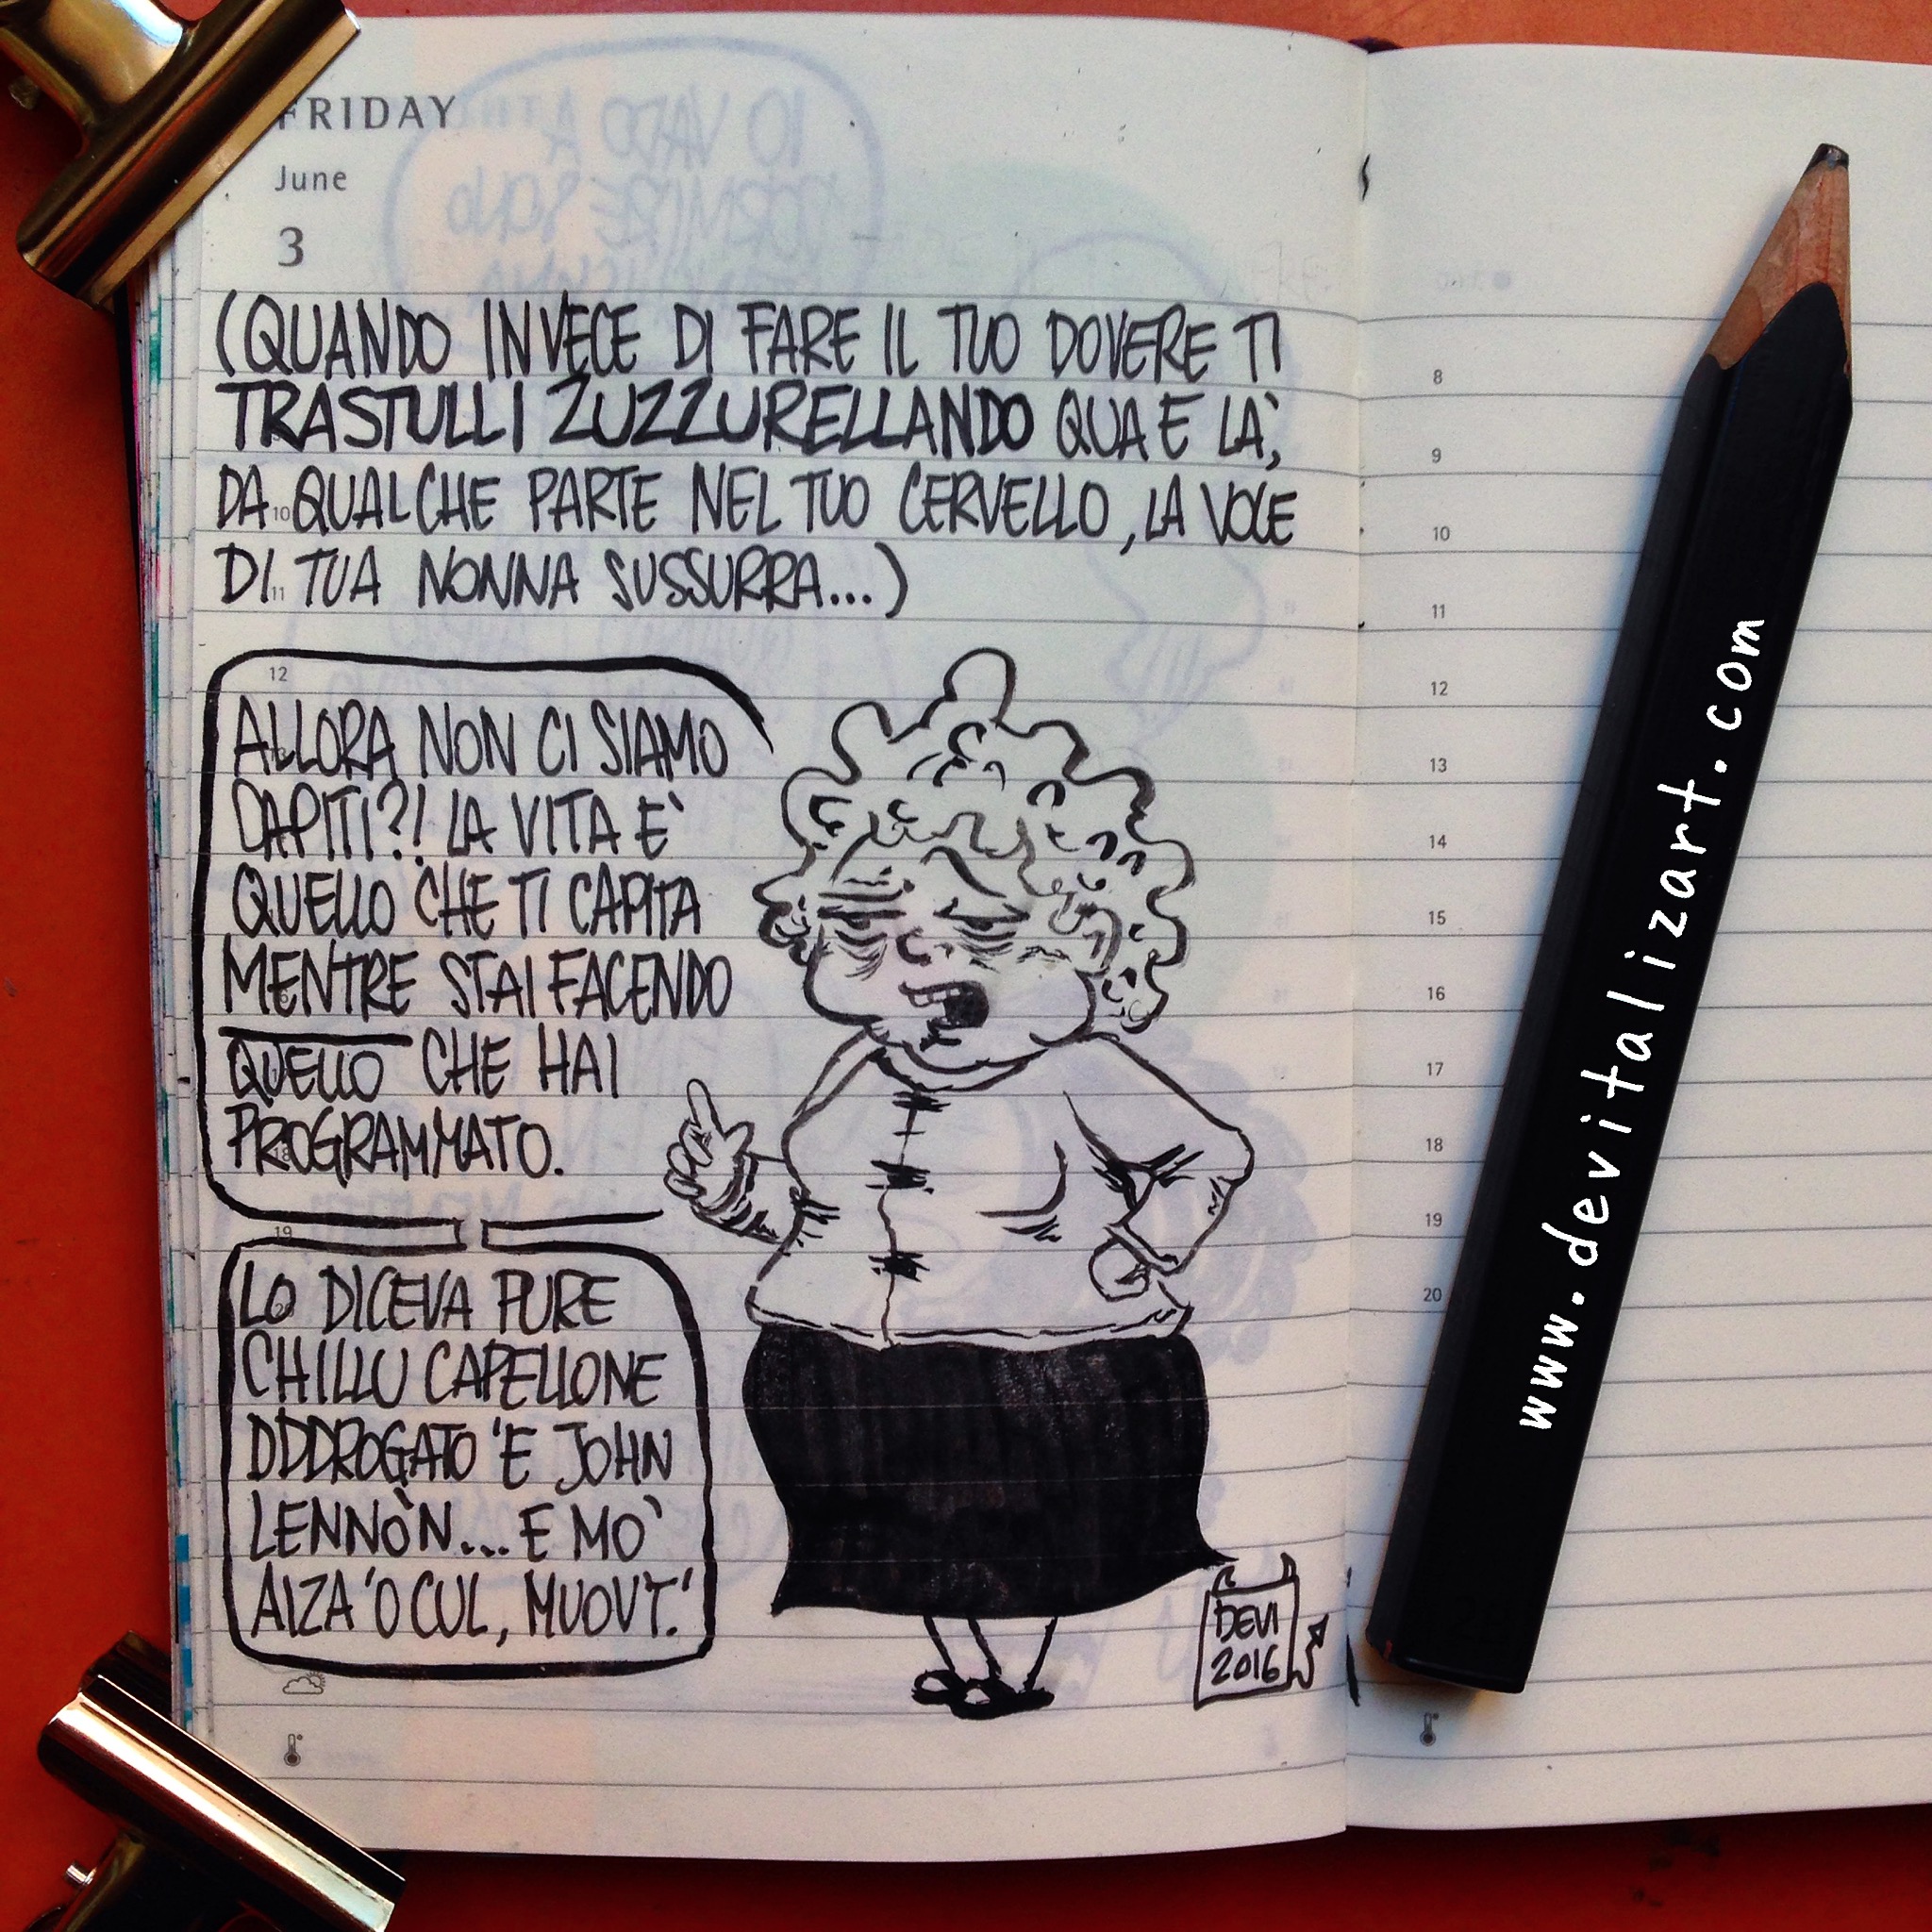 FRIDAY
June
3
(QUANDO INVECE DI FARE IL TUO DOVERE TI
TRASTULLI ZUZZURELLANDO QUA E LÀ,
DA QUALCHE PARTE NEL TUO CERVELLO, LA VOCE
DI TUA NONNA SUSSURRA...)
ALLORA NON CI SIAMO
CAPITI?! LA VITA E'
QUELLO CHE TI CAPITA
MENTRE STAI FACENDO
QUELLO CHE HAI
PROGRAMMATO.
LO DICEVA PURE
CHILLU CAPELLONE
DDDROGATO 'E JOHN
LENNÒN... E MO'
ALZA 'O CUL, MUOVT.'
DEVI
2016
10
11
12
19
8
9
10
11
12
13
14
15
16
17
18
19
20
www.devitalizart.com